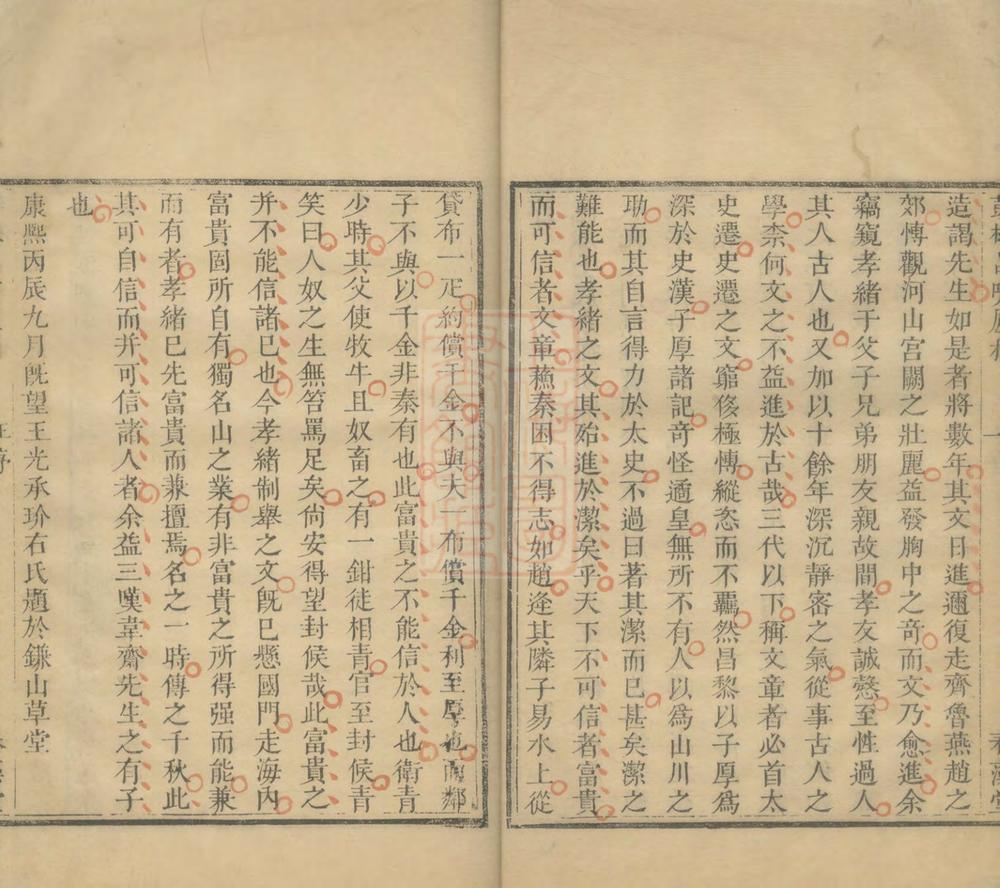 造謁先生如是者將數年其文日進邇復走齊魯燕趙之
郊愽觀河山宮闕之壯麗益發胸中之奇而文乃愈進余
竊窺孝緒于父子兄弟朋友親故間孝友誠慤至性過人
其人古人也又加以十餘年深沉靜審之氣從事古人之
學柰何文之不益進於古哉三代以下稱文章者必首太
史遷史遷之文竆侈極愽縱恣而不羈然昌黎以子厚爲
深於史漢子厚諸記奇怪遒皇無所不有人以爲山川之
助而其自言得力於太史不過曰著其潔而已甚矣潔之
難能也孝緒之文其始進於潔矣乎天下不可信者富貴
而可信者文章蘇秦困不得志如趙逄其隣子易水上從
貸布一疋約償千金不與夫一布償千金利至厚也而鄰
子不與以千金非秦有也此富貴之不能信於人也衛青
少時其父使牧牛且奴畜之有一鉗徒相青官至封侯青
笑曰人奴之生無笞罵足矣尙安得望封侯哉此富貴之
并不能信諸已也今孝緒制舉之文旣已懸國門走海內
富貴固所自有獨名山之業有非富貴之所得强而能兼
而有者孝緒已先富貴而兼擅焉名之一時傳之千秋此
其可自信而并可信諸人者余益三嘆韋齋先生之有子
也
康熙丙辰九月旣望王光承玠右氏題於鎌山草堂